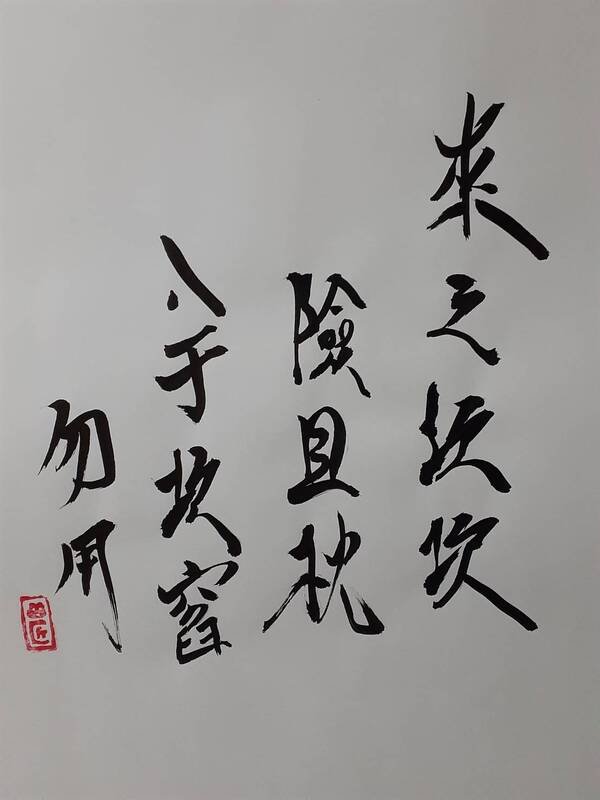 來之坎坎
險且枕
入于坎窞
勿用